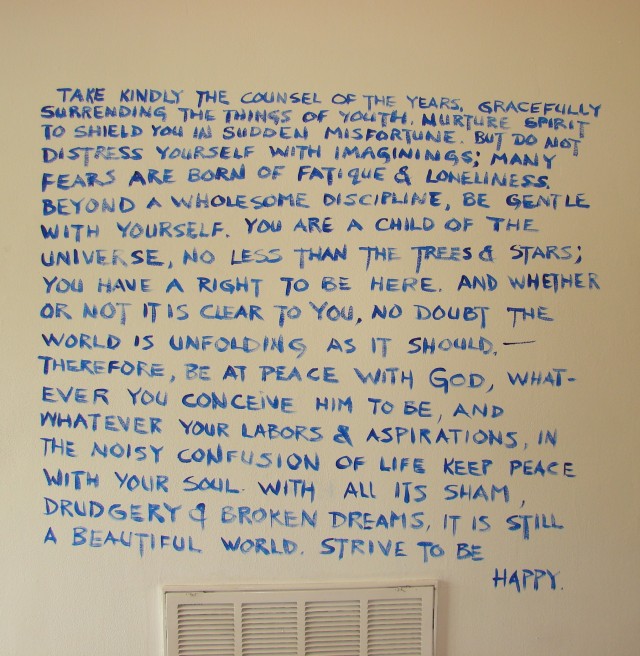 TAKE KINDLY THE COUNSEL OF THE YEARS, GRACEFULLY
SURRENDING THE THINGS OF YOUTH. NURTURE SPIRIT
TO SHIELD YOU IN SUDDEN MISFORTUNE. BUT DO NOT
DISTRESS YOURSELF WITH IMAGININGS; MANY
FEARS ARE BORN OF FATIQUE & LONELINESS.
BEYOND A WHOLESOME DISCIPLINE, BE GENTLE
WITH YOURSELF. YOU ARE A CHILD OF THE
UNIVERSE, NO LESS THAN THE TREES & STARS;
YOU HAVE A RIGHT TO BE HERE. AND WHETHER
OR NOT IT IS CLEAR TO YOU, NO DOUBT THE
WORLD IS UNFOLDING AS IT SHOULD. —
THEREFORE, BE AT PEACE WITH GOD, WHAT-
EVER YOU CONCEIVE HIM TO BE, AND
WHATEVER YOUR LABORS & ASPIRATIONS, IN
THE NOISY CONFUSION OF LIFE KEEP PEACE
WITH YOUR SOUL. WITH ALL ITS SHAM,
DRUDGERY & BROKEN DREAMS, IT IS STILL
A BEAUTIFUL WORLD. STRIVE TO BE
HAPPY.